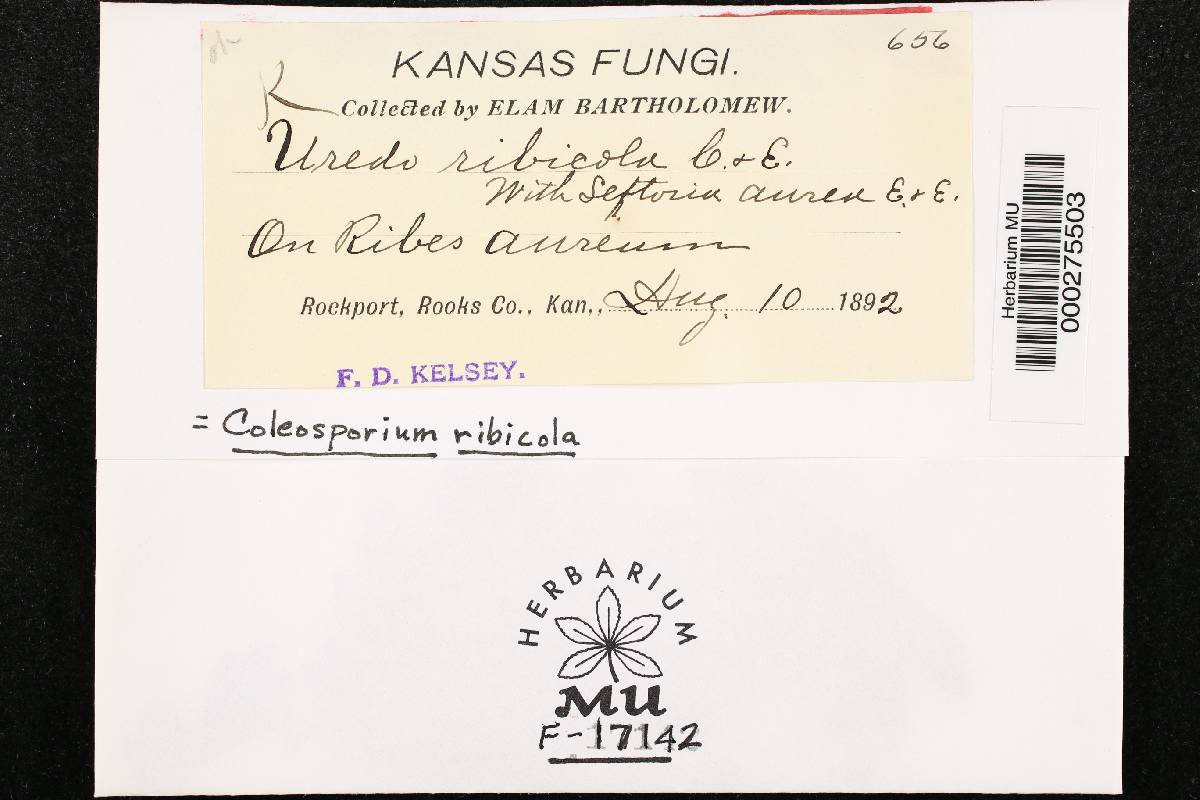 656
KANSAS FUNGI.
K
Collected by ELAM BARTHOLOMEW.
Uredo ribicola C. & E.
With Septoria aurea E. & E.
On Ribes aureum
Rockport, Rooks Co., Kan., Aug. 10 1892
F. D. KELSEY.
= Coleosporium ribicola
Herbarium MU
000275503
HERBARIUM
MU
F-17142